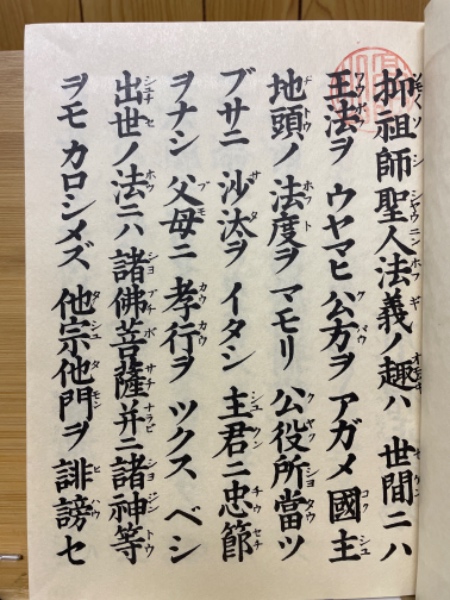 抑祖師聖人法義ノ趣ハ 世間ニハ
王法ヲ ウヤマヒ 公方ヲ アガメ 國主
地頭ノ 法度ヲ マモリ 公役所當ツ
ブサニ 沙汰ヲ イタシ 主君ニ 忠節
ヲナシ 父母ニ 孝行ヲ ツクス ベシ
出世ノ 法ニハ 諸佛菩薩并ニ諸神等
ヲモ カロシメズ 他宗他門ヲ 誹謗セ